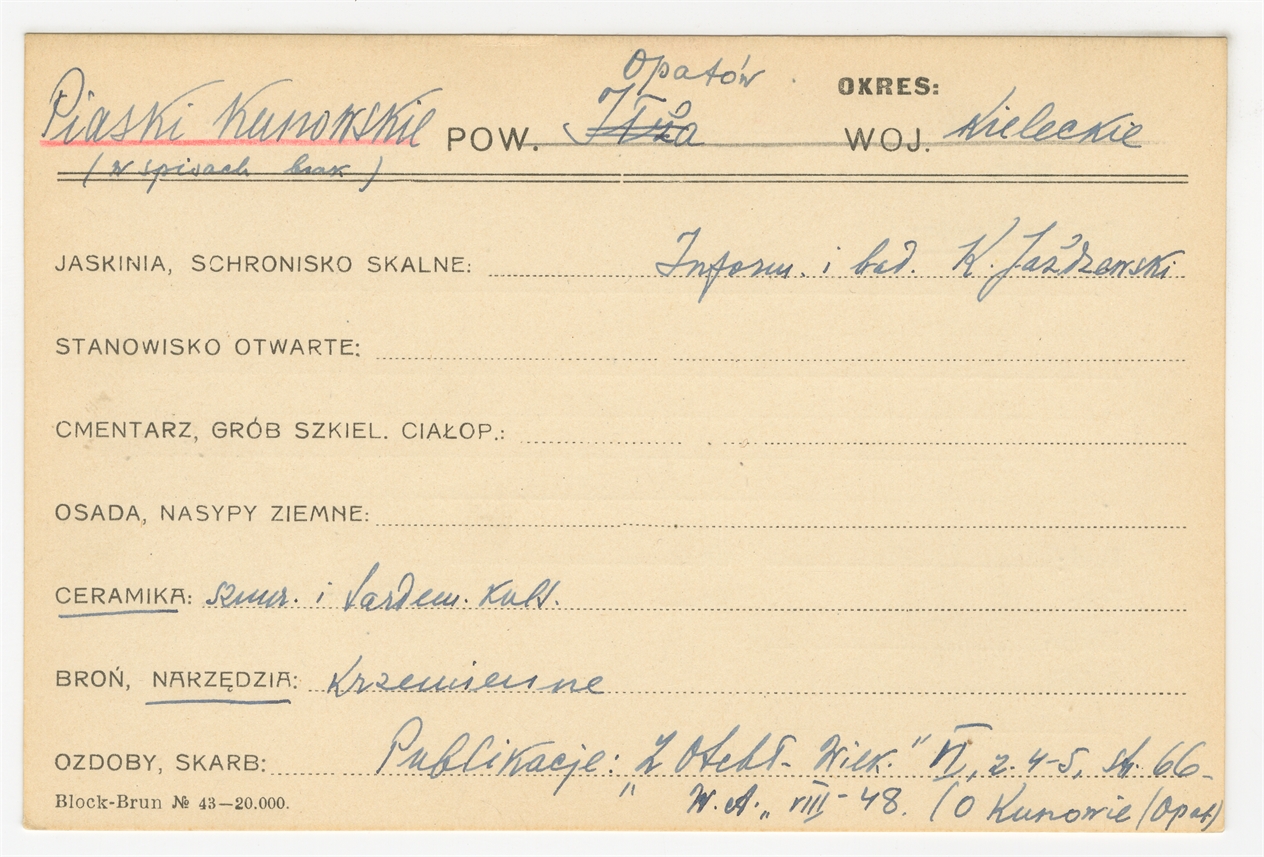 Opatów OKRES:
Piaski Kunowskie POW. Iłża WOJ. Kieleckie
(w spisach brak)
JASKINIA, SCHRONISKO SKALNE: Inform. i bad. K. Jażdżewski
STANOWISKO OTWARTE:
CMENTARZ, GRÓB SZKIEL. CIAŁOP.:
OSADA, NASYPY ZIEMNE:
CERAMIKA: sznur. i tardem. kult.
BROŃ, NARZĘDZIA: krzemienne
OZDOBY, SKARB: Publikacje: „Z Otchł. Wiek.” VI, z. 4-5, str. 66-
Block-Brun № 43—20.000. W. A. VIII - 48. (O Kunowie (Opat)